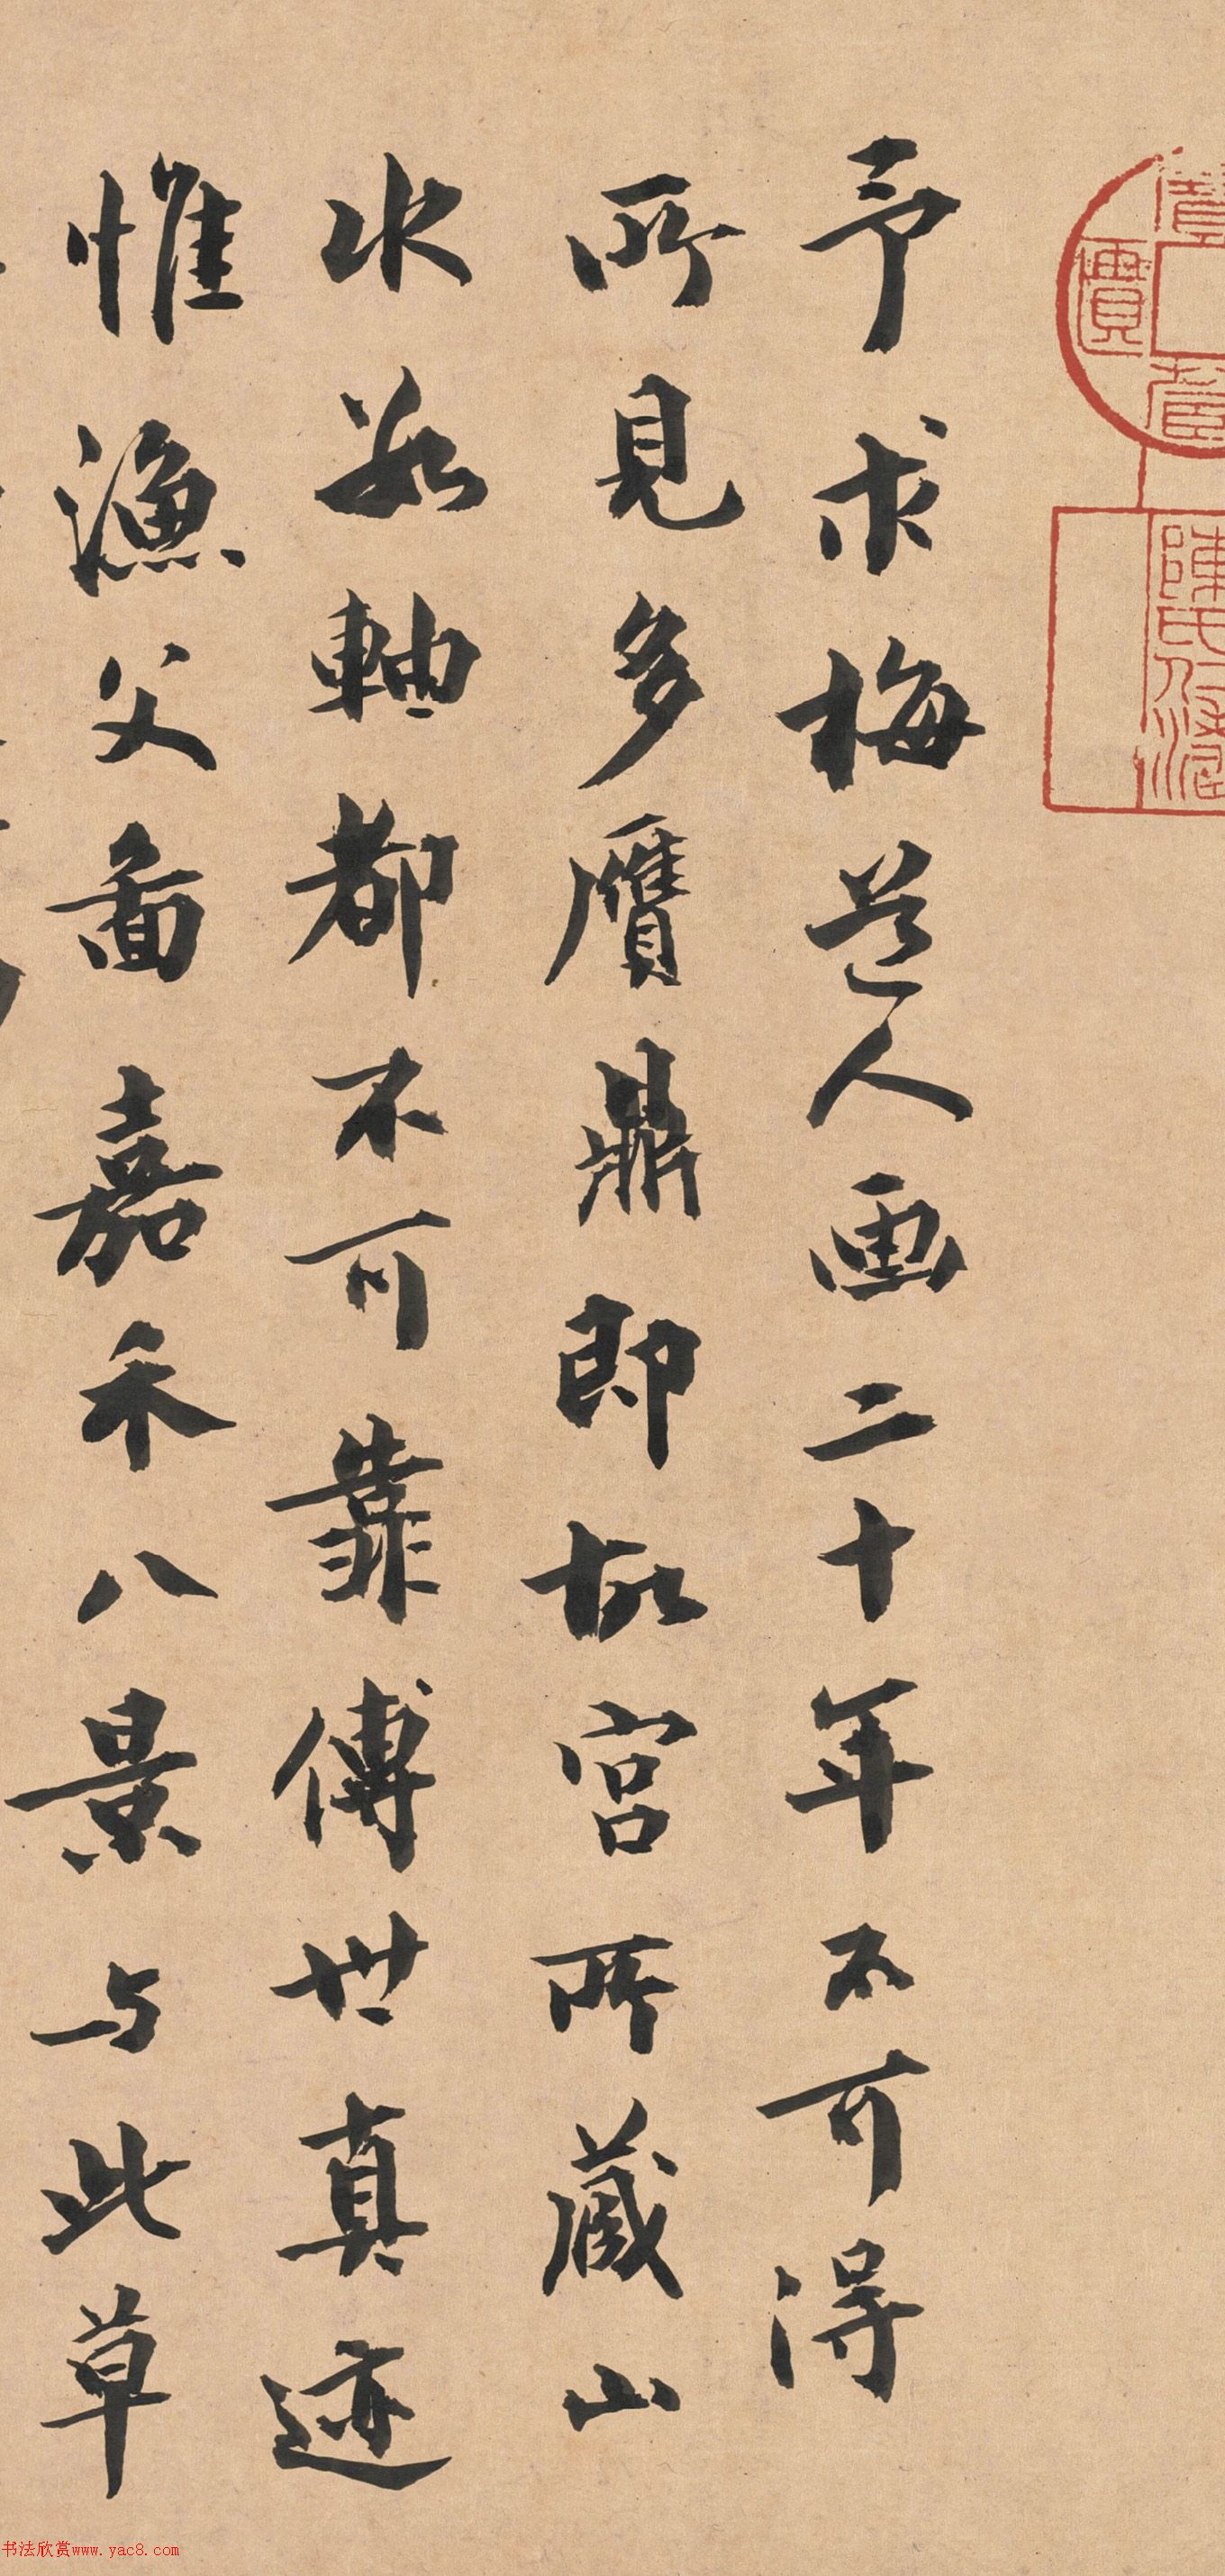 予求梅道人画二十年不可得
所見多贋鼎即故宫所藏山
水数軸都不可靠傳世真迹
惟漁父啚嘉禾八景与此草
陳氏
书法欣赏www.yac8.com